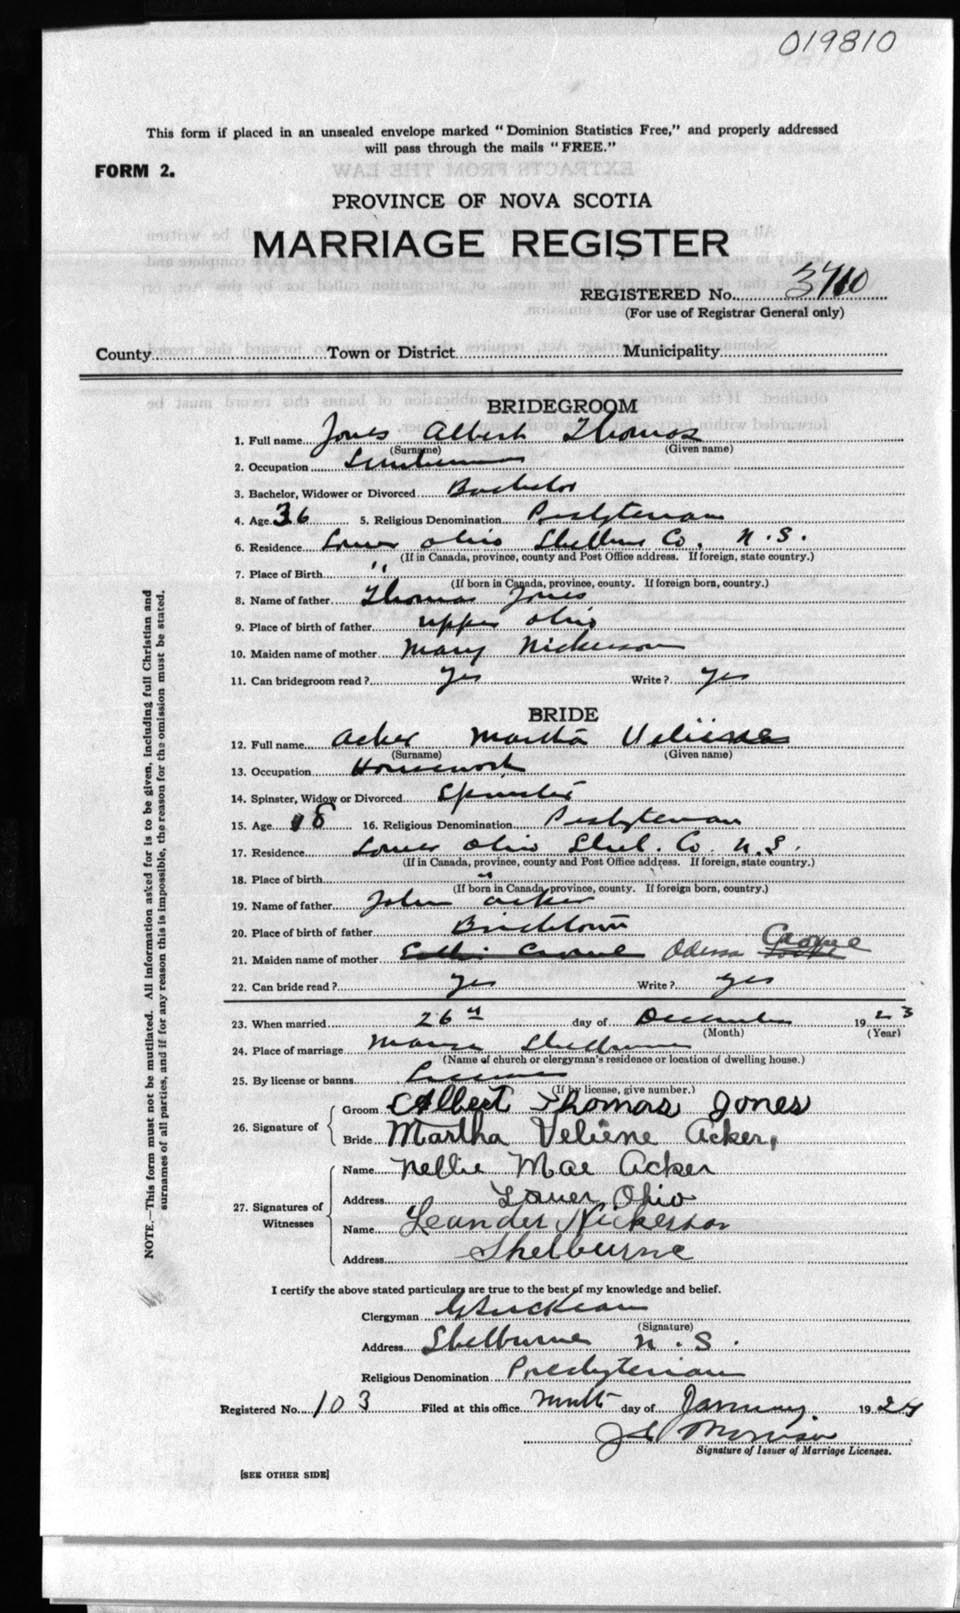 019810
This form if placed in an unsealed envelope marked "Dominion Statistics Free," and properly addressed
will pass through the mails "FREE."
FORM 2.
PROVINCE OF NOVA SCOTIA
MARRIAGE REGISTER
REGISTERED No. 3710
(For use of Registrar General only)
County Town or District Municipality
BRIDEGROOM
1. Full name Jones Albert Thomas
(Surname) (Given name)
2. Occupation Lumberman
3. Bachelor, Widower or Divorced Bachelor
4. Age 36 5. Religious Denomination Presbyterian
6. Residence Lower Ohio Shelburne Co. N.S.
(If in Canada, province, county and Post Office address. If foreign, state country.)
7. Place of Birth "
(If born in Canada, province, county. If foreign born, country.)
8. Name of father Thomas Jones
9. Place of birth of father upper Ohio
10. Maiden name of mother Mary Nickerson
11. Can bridegroom read? Yes Write? Yes
BRIDE
12. Full name Acker Martha Veliene
(Surname) (Given name)
13. Occupation Housework
14. Spinster, Widow or Divorced Spinster
15. Age 18 16. Religious Denomination Presbyterian
17. Residence Lower Ohio Shel. Co. N.S.
(If in Canada, province, county and Post Office address. If foreign, state country.)
18. Place of birth "
(If born in Canada, province, county. If foreign born, country.)
19. Name of father John Acker
20. Place of birth of father Birchtown
21. Maiden name of mother Odessa
22. Can bride read? Yes Write? yes
23. When married 26th day of December 1923
(Month) (Year)
24. Place of marriage Manse Shelburne
(Name of church or clergyman's residence or location of dwelling house.)
25. By license or banns License
(If by license, give number.)
26. Signature of
Groom Albert Thomas Jones
Bride Martha Veliene Acker,
27. Signatures of Witnesses
Name Nellie Mae Acker
Address Lower Ohio
Name Leander Nickerson
Address Shelburne
I certify the above stated particulars are true to the best of my knowledge and belief.
Clergyman
(Signature)
Address Shelburne N.S.
Religious Denomination Presbyterian
Registered No. 103 Filed at this office ninth day of January 1924
Morrison
Signature of Issuer of Marriage Licenses.
[SEE OTHER SIDE]
NOTE.—This form must not be mutilated. All information asked for is to be given, including full Christian and
surnames of all parties, and if for any reason this is impossible, the reason for the omission must be stated.